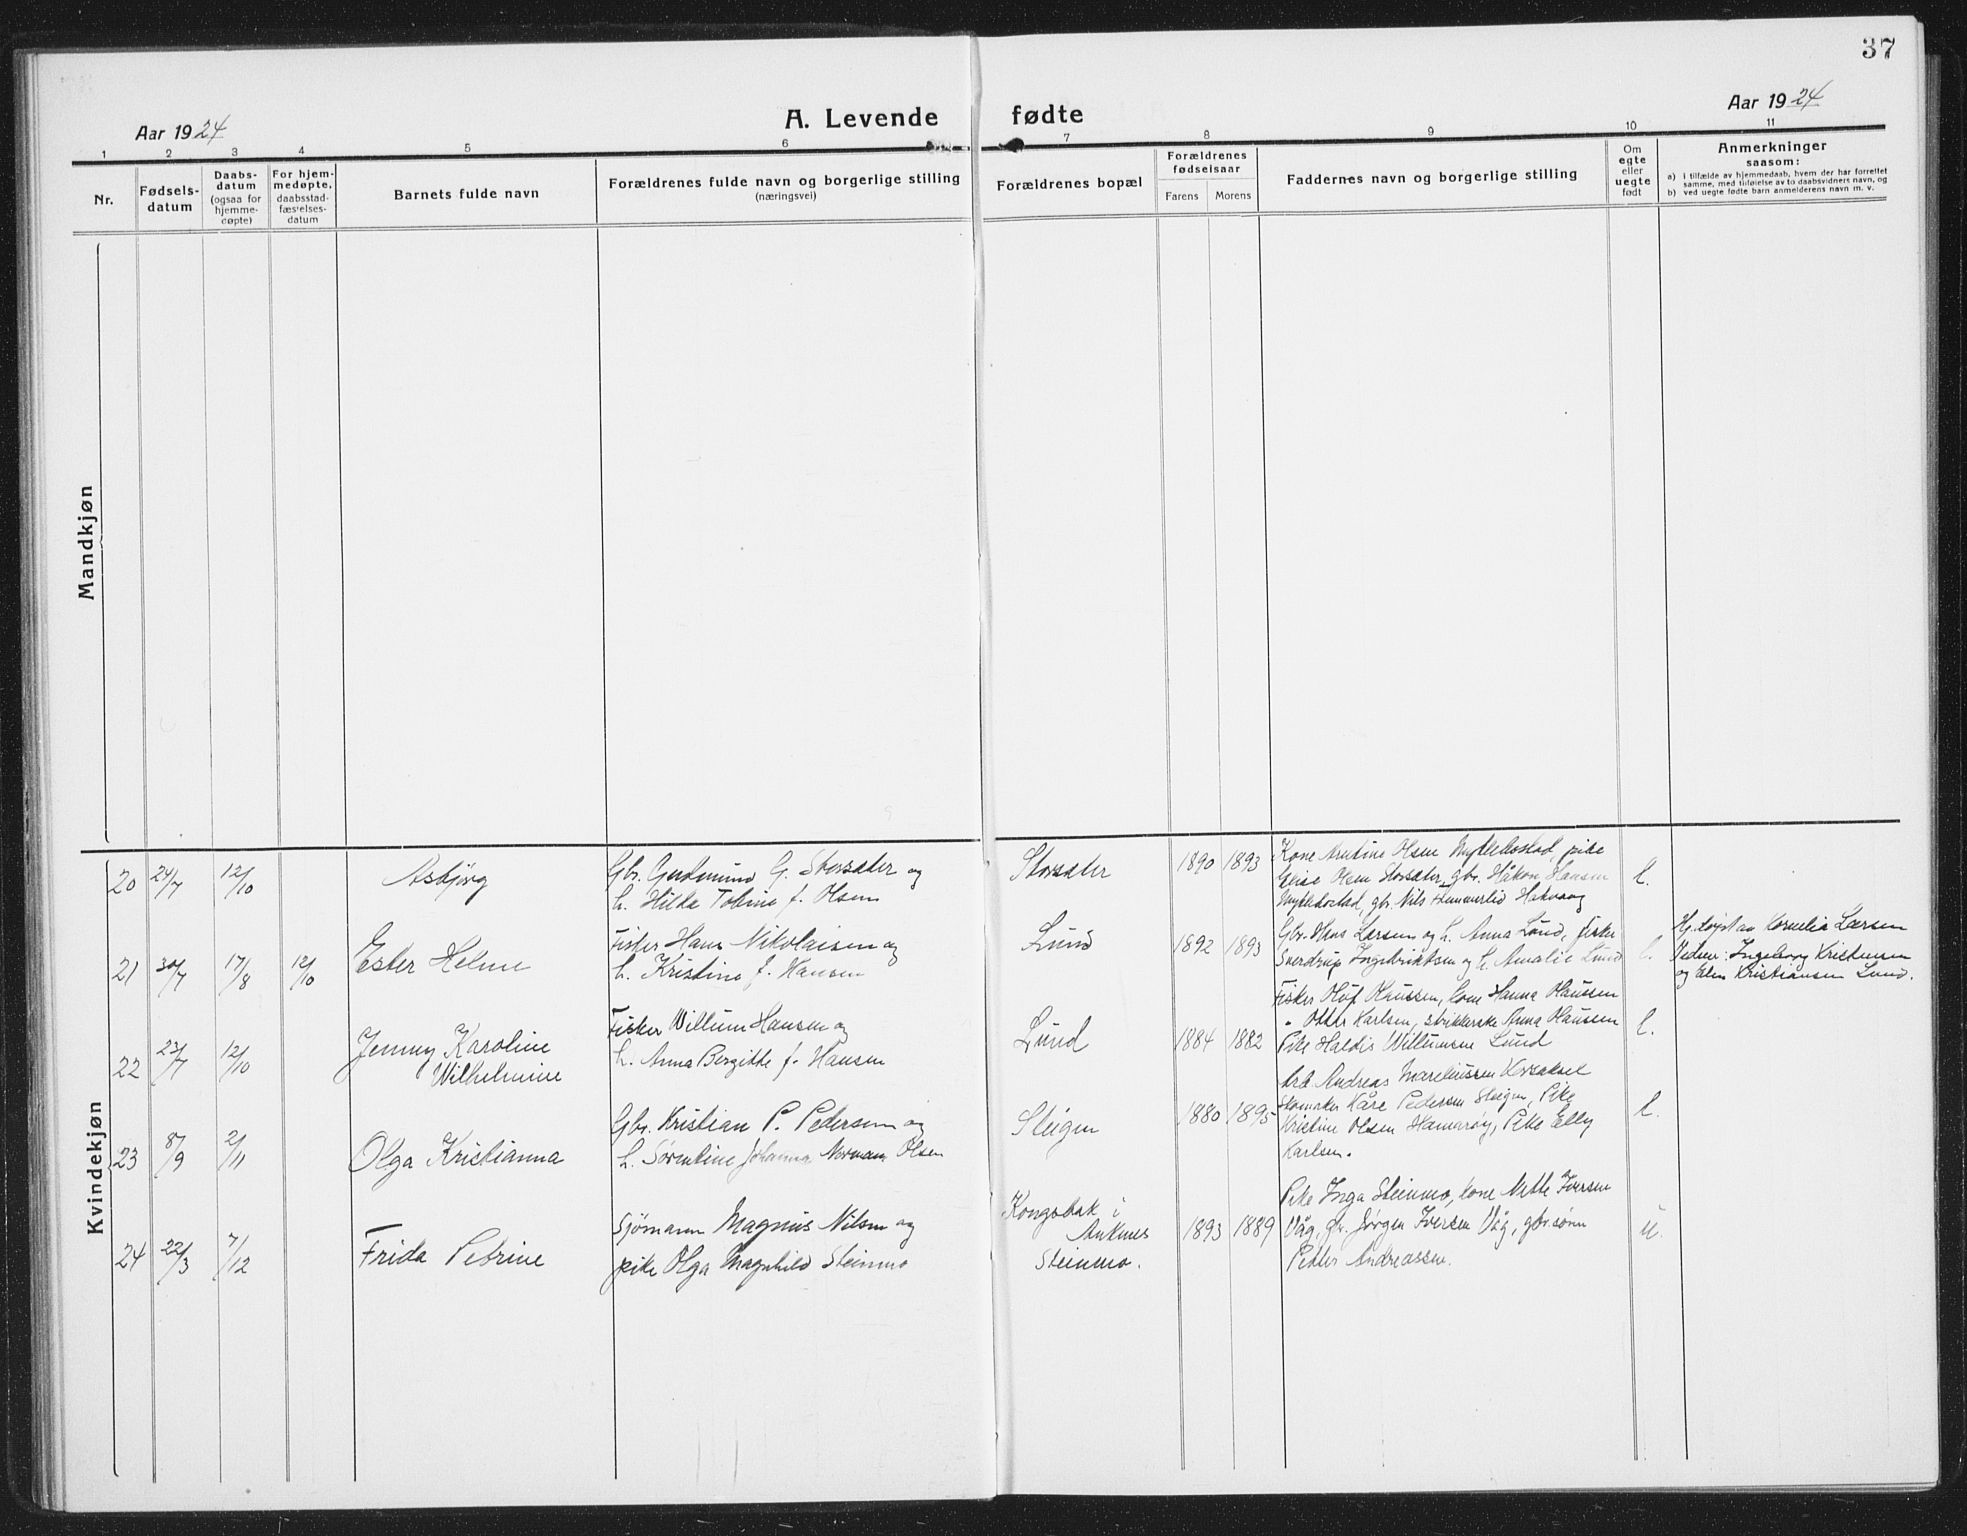 37
Aar 1924
A. Levende fødte
Aar 1924
1 2 3 4 5 6 7 8 9 10 11
Nr.
Fødsels-
datum
Daabs-
datum
(ogsaa for
hjemme-
døpte)
For hjem-
medøpte,
daabsstad-
fæstelses-
datum
Barnets fulde navn
Forældrenes fulde navn og borgerlige stilling
(næringsvei)
Forældrenes bopæl
Forældrenes
fødselsaar
Farens Morens
Faddernes navn og borgerlige stilling
Om
egte
eller
uegte
født
Anmerkninger
saasom:
a) i tilfælde av hjemmedaab, hvem der har forrettet
samme, med tilføielse av to daabsvidners navn, og
b) ved uegte fødte barn anmelderens navn m. v.
Mandkjøn
Kvindekjøn
20 24/7 12/10
Asbjörg
Gbr. Gudmund G. Storsæter og
h. Hilda Tobine f. Olsen
Storsæter
1890 1893
Kone Olsen Myklebostad, pike
Elise Olsen Storsæter, gbr. Håkon Hansen
Myklebostad, gbr. Nils Hammerlid
l.
21 30/7 17/8 12/10
Ester Helene
Fisker Hans Nikolaisen og
h. Kristine f. Hansen
Lund
1892 1893
Gbr. Hans Larsen og h. Anna Lund, fisker
Sverdrup Ingebriktsen og h. Amalie Lund
l.
Kornelia Larsen
Vidner: Ingeborg Kristensen
og Elen Kristiansen Lund.
22 23/7 12/10
Jenny Karoline
Wilhelmine
Fisker Willum Hansen og
h. Anna Bergitte f. Hansen
Lund
1884 1882
Fisker Olaf Olaussen, kone Hanna Olaussen
" Ottar Karlsen, strikkerske Anna Olausen
Pike Haldis Willumsen Lund
l.
23 8/9 2/11
Olga Kristianna
Gbr. Kristian P. Pedersen og
h. Sørentine Johanna Norman Olsen
Steigen
1880 1895
Andreas Mareliussen
Skomaker Kåre Pedersen Steigen, Pike
Kristine Olsen Hamarøy, Pike Elly
Karlsen.
l.
24 22/3 7/12
Frida Petrine
Sjömann Magnus Nilsen og
pike Olga Magnhild Steinmo
Kongsbak i
Ankenes
Steinmo.
1893 1889
Pike Inga Steinmo, kone Mette Iversen
Våg, gbr. Jørgen Iversen Våg, gbr.sønn
Petter Andreassen.
u.